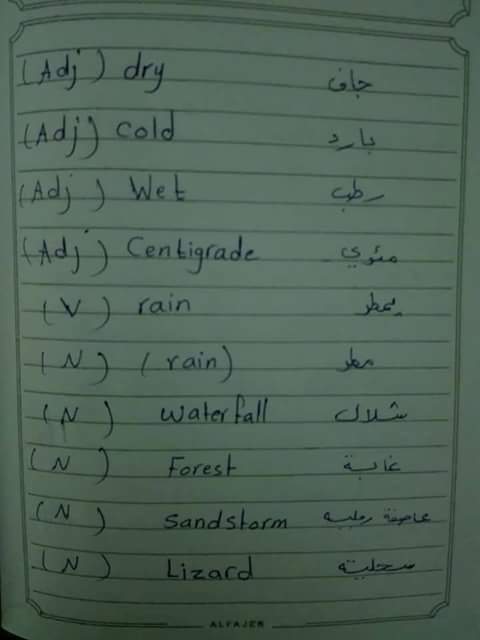 (Adj) dry جاف
(Adj) cold بارد
(Adj) Wet رطب
(Adj) Centigrade مئوي
(V) rain يمطر
(N) (rain) مطر
(N) waterfall شلال
(N) Forest غابة
(N) Sandstorm عاصفة رمليه
(N) Lizard سحليه
ALFAJER